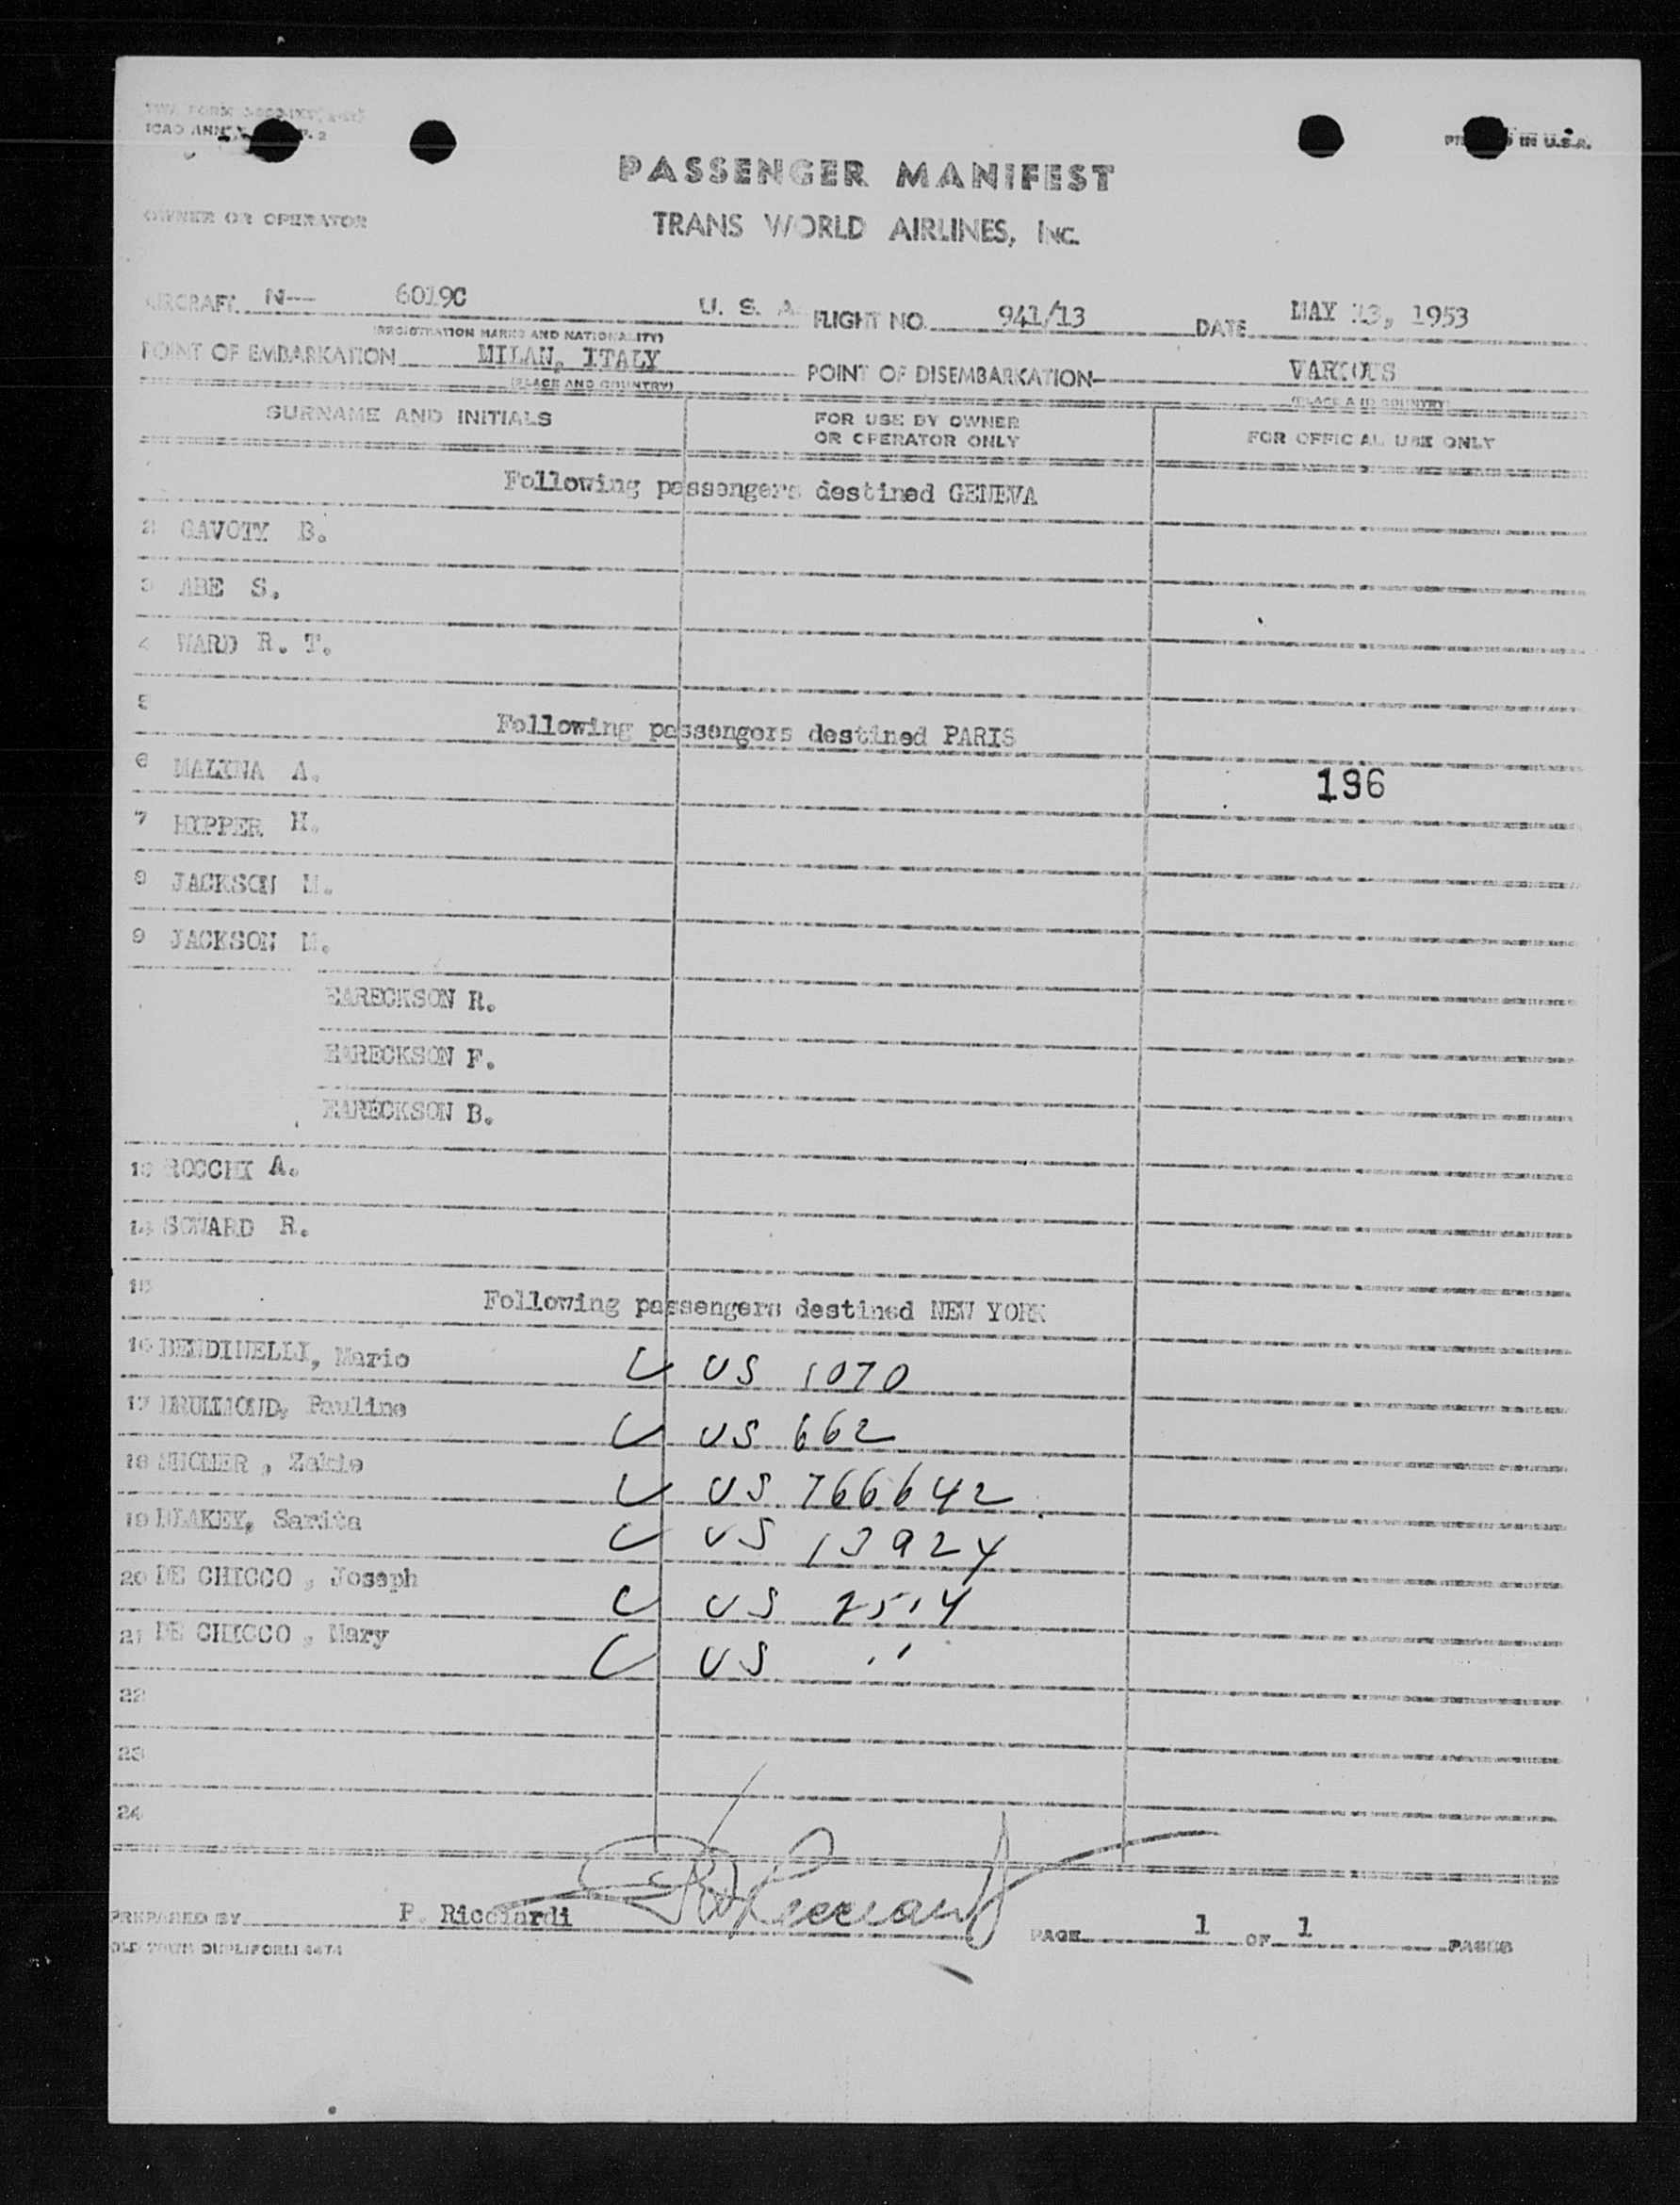 ICAO ANN P. 2
IN U.S.A.
PASSENGER MANIFEST
OWNER OR OPERATOR
TRANS WORLD AIRLINES, INC.
AIRCRAFT N-- 6019C U. S. A. FLIGHT NO. 941/13 DATE MAY 13, 1953
(REGISTRATION MARKS AND NATIONALITY)
POINT OF EMBARKATION MILAN, ITALY POINT OF DISEMBARKATION VARIOUS
(PLACE AND COUNTRY) (PLACE AND COUNTRY)
SURNAME AND INITIALS FOR USE BY OWNER OR OPERATOR ONLY FOR OFFICIAL USE ONLY
Following passengers destined GENEVA
2 GAVOTY B.
3 ABE S.
4 WARD R. T.
5
Following passengers destined PARIS
6 MALINA A.
196
7 HIPPER H.
8 JACKSON M.
9 JACKSON M.
EARECKSON R.
EARECKSON F.
EARECKSON B.
13 ROCCHI A.
14 SOWARD R.
15
Following passengers destined NEW YORK
16 BENDINELLI, Mario US 1070
17 DRUMMOND, Pauline US 662
18 SHOMER, Zakie US 766642
19 BLAKEY, Sarita US 13924
20 DE CHICCO, Joseph US 2514
21 DE CHICCO, Mary US "
22
23
24
PREPARED BY P. Ricciardi
PAGE 1 OF 1 PAGES
OLD TOWN DUPLIFORM 4474